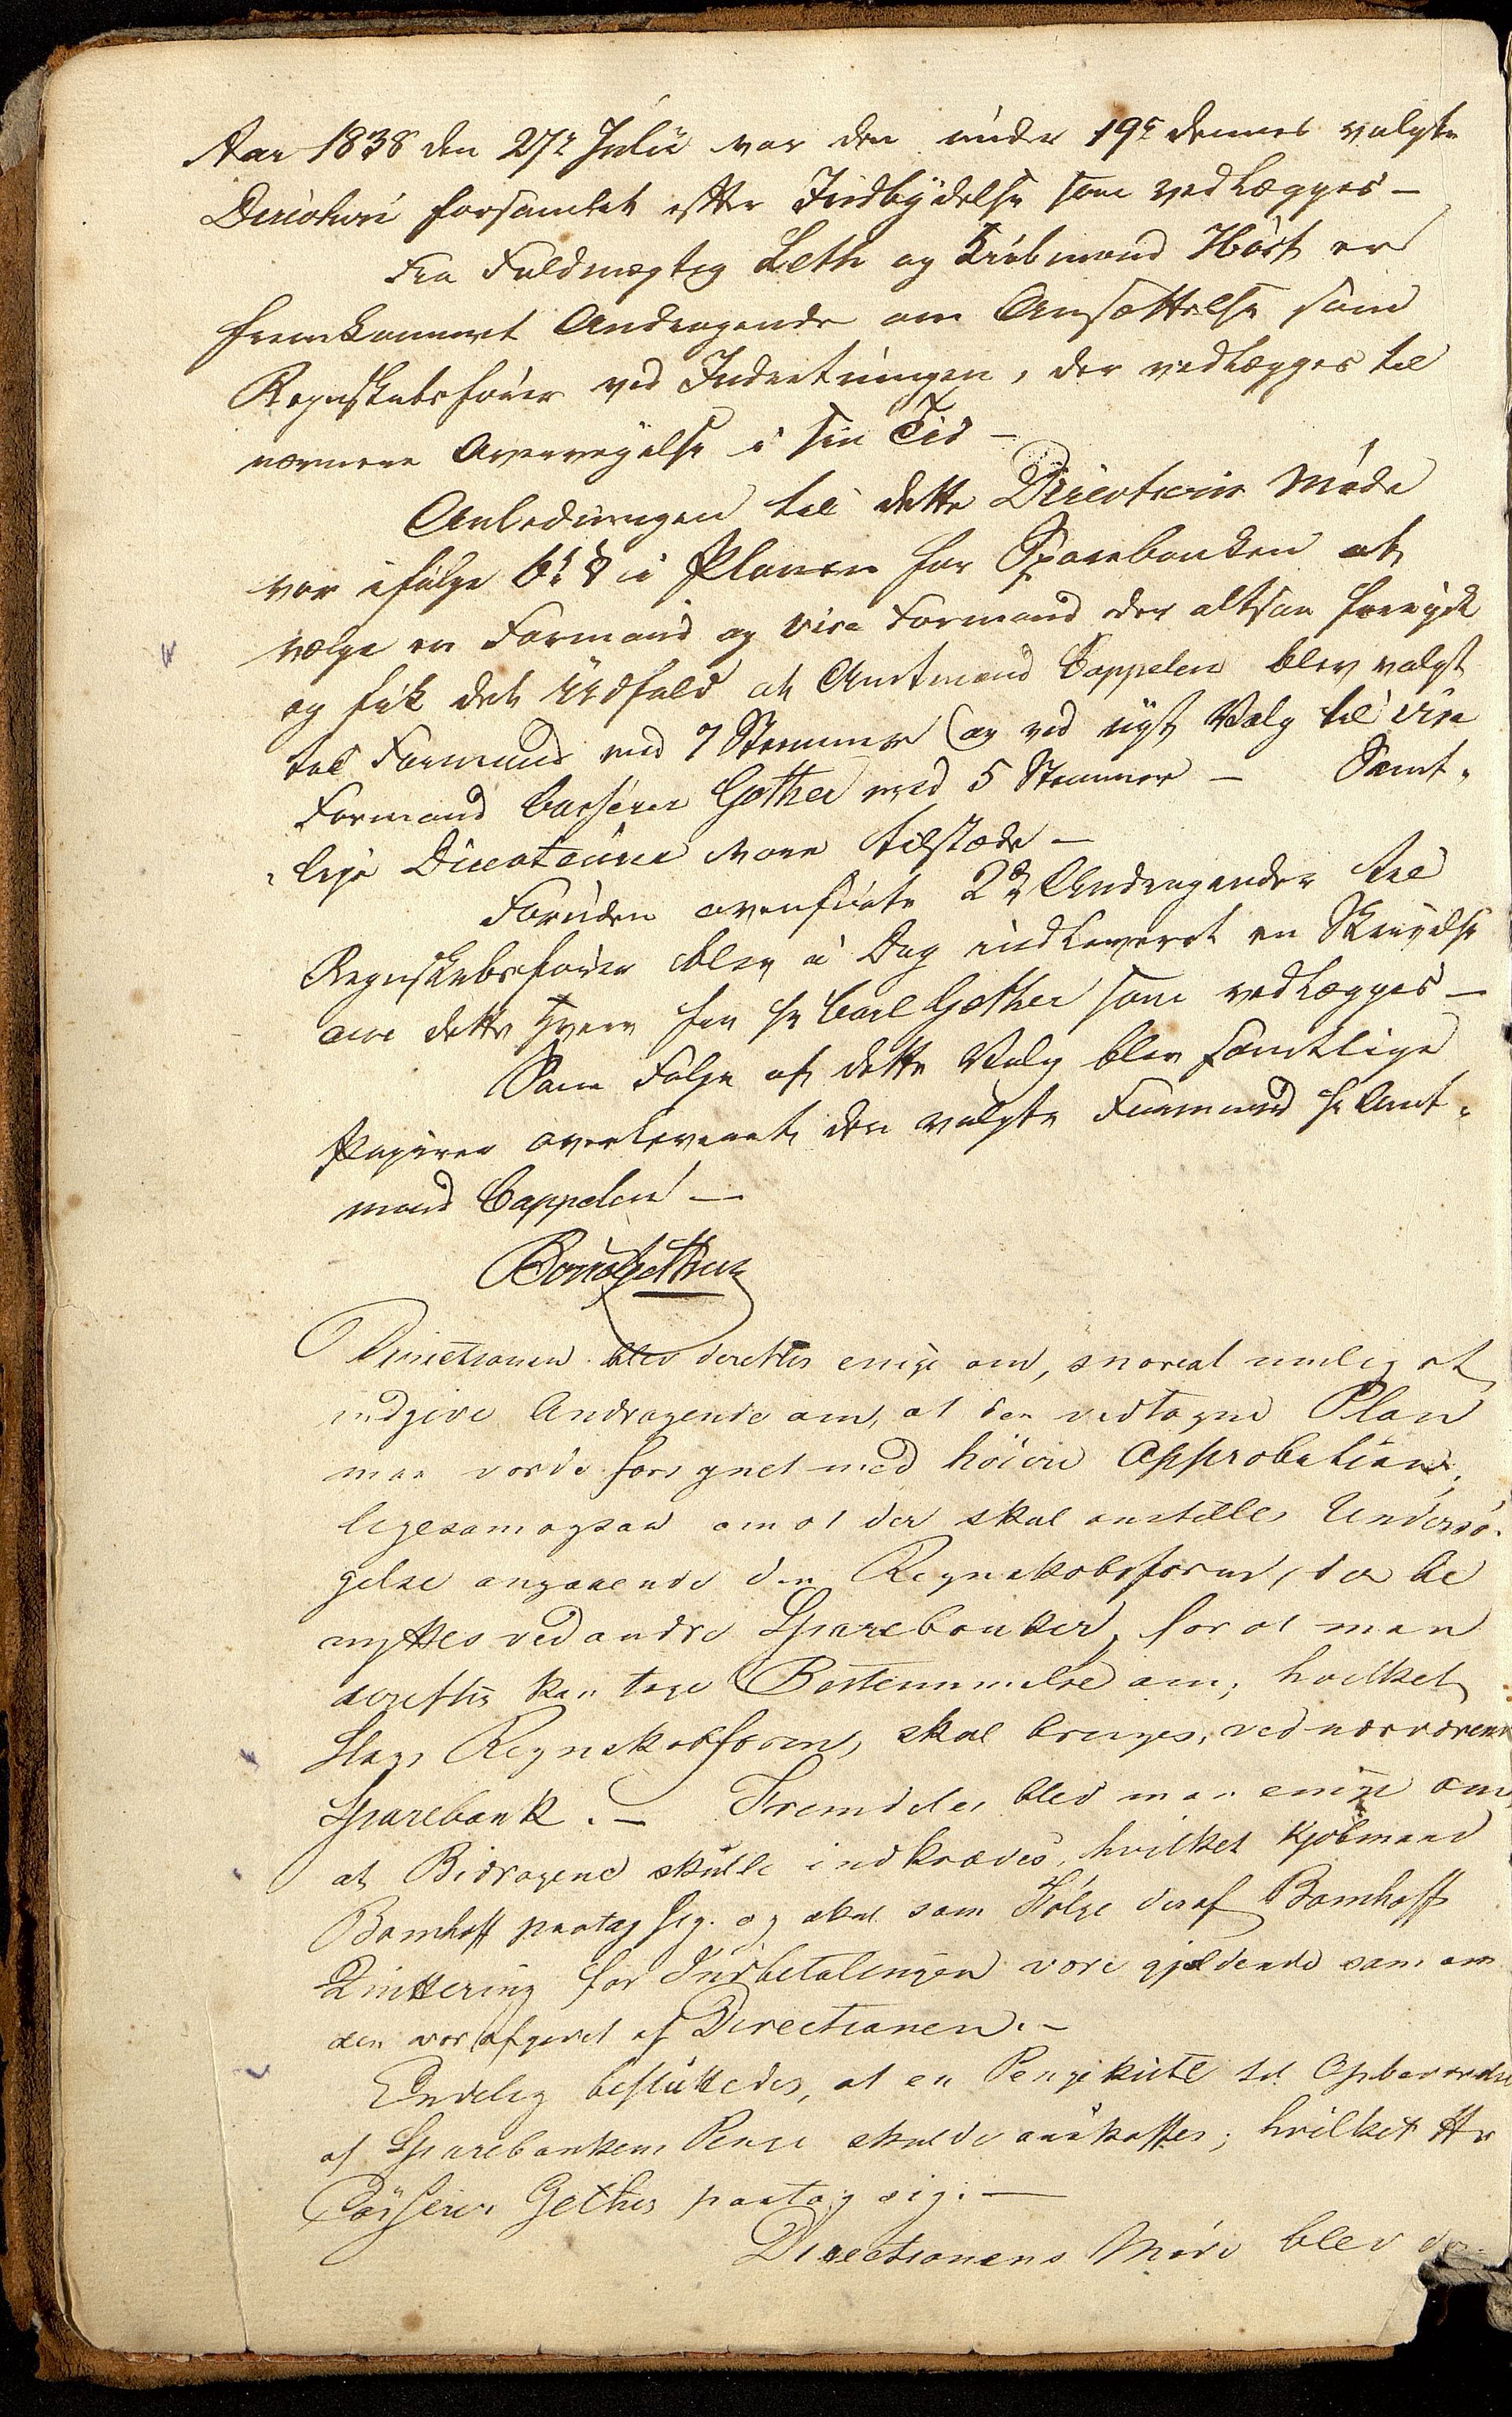 Aar 1838 den 27de Julii var den under 19de dennes valgte
Direction forsamlet efter Indbydelse som vedlægges –
Fra Fuldmægtig Leth og Kiøbmand Høst er
fremkommet Andragende om Ansættelse som
Regnskabsfører ved Indretningen, der vedlægges til
nærmere Overveyelse i sin Tid –
Anledningen til dette Directions Møde
var ifølge 6te § i Planen for Sparebanken at
vælge en Formand og vice Formand der altsaa foregik
og fik det Udfald at Amtmand Cappelen blev valgt
til Formand med 7 Stemmer og ved nyt Valg til vice
Formand Casserer Gether med 5 Stemmer – Samt-
lige Directeurer vare tilstæde –
Foruden ovenførte 2de Andragender til
Regnskabsfører blev i Dag indleveret en Skrivelse
om dette Hverv fra Hr Carl Gether som vedlægges –
Som Følge af dette Valg blev samtlige
Papirer overleveret den valgte Formand Hr Amt-
mand Cappelen –
Directionen blev derefter enige om, snarest mulig at
indgive Andragende om, at den vedtagne Plan
maa vorde forsynet med høiere Approbation,
ligesom ogsaa om at der skal anstilles Undersø-
gelse angaaende den Regnskabsform, der be
nyttes ved andre Sparebanker, for at man
derefter kan tage Bestemmelse om, hvilket
Slags Regnskabsform, skal bruges, ved nærværende
Sparebank. – Fremdeles blev man enige om
at Bidragene skulle indkræves, hvilket Kjøbmand
Bomhoff paatog sig. og skal som Følge deraf Bomhoffs
Qvittering for Indbetalingen være gjeldende som om
den var afgivet af Directionen. –
Endelig besluttedes, at en Pengekiste til Opbevarelse
af Sparebankens Penge skulde anskaffes; hvilket Hr
Casserer Gether paatog sig. –
Directionens Møde blev